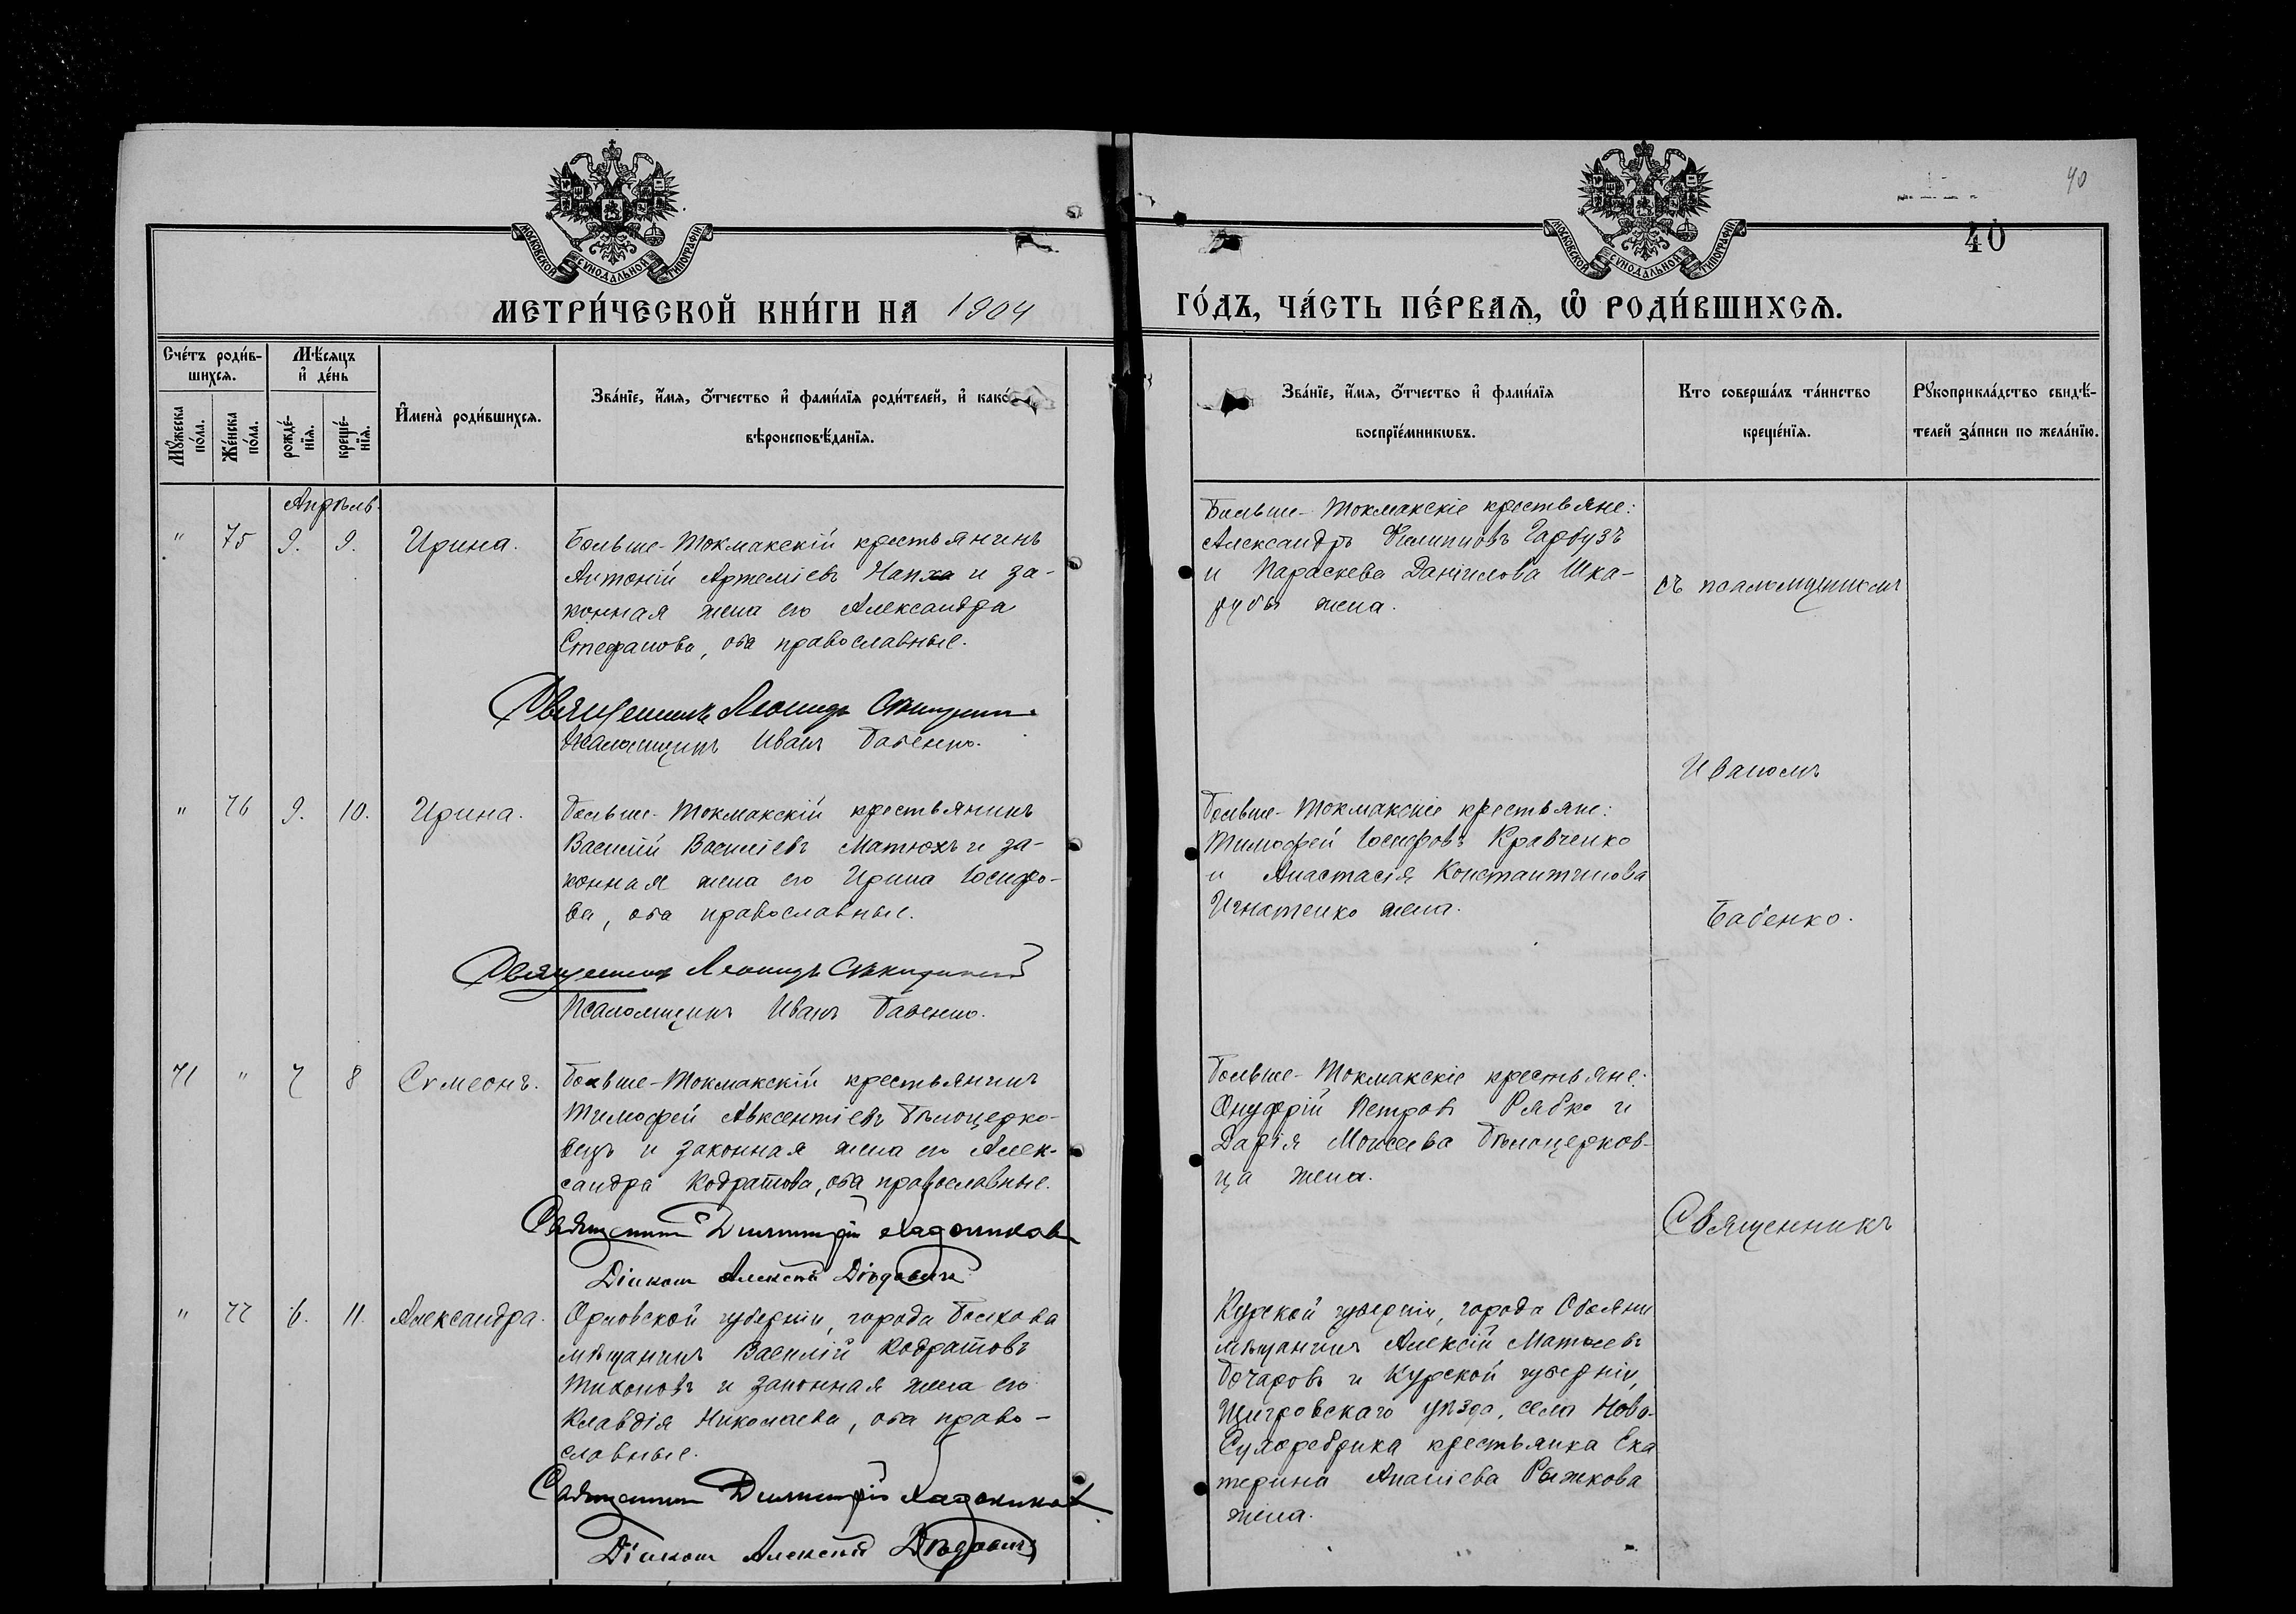 МОСКОВСКОЙ СѴНОДАЛЬНОЙ ТИПОГРАФІИ
МОСКОВСКОЙ СѴНОДАЛЬНОЙ ТИПОГРАФІИ
40
40
МЕТРИ́ЧЕСКОЙ КНИ́ГИ НА 1904
ГО́ДЪ, ЧА́СТЬ ПЕ́РВАѦ, Ѡ РОДИ́ВШИХСѦ.
Сче́тъ роди́в-
шихсѧ.
Мꙋ́жеска по́ла.
Же́нска по́ла.
Мѣ́сѧцъ
и҆ де́нь
рожде́-
нїѧ.
креще́-
нїѧ.
И҆мена̀ роди́вшихсѧ.
Зва́нїе, и҆́мѧ, ѻ҆́тчество и҆ фами́лїѧ роди́телей, и҆ како́
вѣроисповѣ́данїѧ.
Зва́нїе, и҆́мѧ, ѻ҆́тчество и҆ фами́лїѧ
воспрїе́мникѡвъ.
Кто соверша́лъ та́инство
креще́нїѧ.
Рꙋкоприкла́дство свидѣ́-
телей за́писи по жела́нїю.
Апрѣль.
" 75 9. 9. Ирина.
Больше-Токмакскій крестьянинъ
Антоній Артеміевъ Напха и за-
конная жена его Александра
Стефанова, оба православные.
Священникъ Леонидъ
Псаломщикъ Иванъ Бабенко.
Больше-Токмакскіе крестьяне:
Александръ Филипповъ Гарбузъ
и Параскева Даніилова Шка-
рубы жена.
съ псаломщикомъ
Иваномъ
Бабенко.
" 76 9. 10. Ирина.
Больше-Токмакскій крестьянинъ
Василій Василіевъ Матюхъ и за-
конная жена его Ирина Іосифо-
ва, оба православные.
Священникъ Леонидъ
Псаломщикъ Иванъ Бабенко.
Больше-Токмакскіе крестьяне:
Тимофей Іосифовъ Кравченко
и Анастасія Константинова
Игнатенко жена.
71 " 7 8 Сѵмеонъ.
Больше-Токмакскій крестьянинъ
Тимофей Авксентіевъ Бѣлоцерко-
вецъ и законная жена его Алек-
сандра Кодратова, оба православные.
Священникъ Димитрій
Діаконъ Алексѣй Дѣдовичъ
Больше-Токмакскіе крестьяне:
Онуфрій Петровъ Рябко и
Дарія Моисеева Бѣлоцерков-
ца жена.
Священникъ
" 77 6. 11. Александра.
Орловской губерніи, города Болхова
мѣщанинъ Василій Кодратовъ
Тихоновъ и законная жена его
Клавдія Николаева, оба право-
славные.
Священникъ Димитрій
Діаконъ Алексѣй Дѣдовичъ
Курской губерніи, города Обояни
мѣщанинъ Алексій Матвеевъ
Бочаровъ и Курской губерніи,
Щигровскаго уѣзда, села Ново-
крестьянка Ека
терина Ананіева Рыжкова
жена.